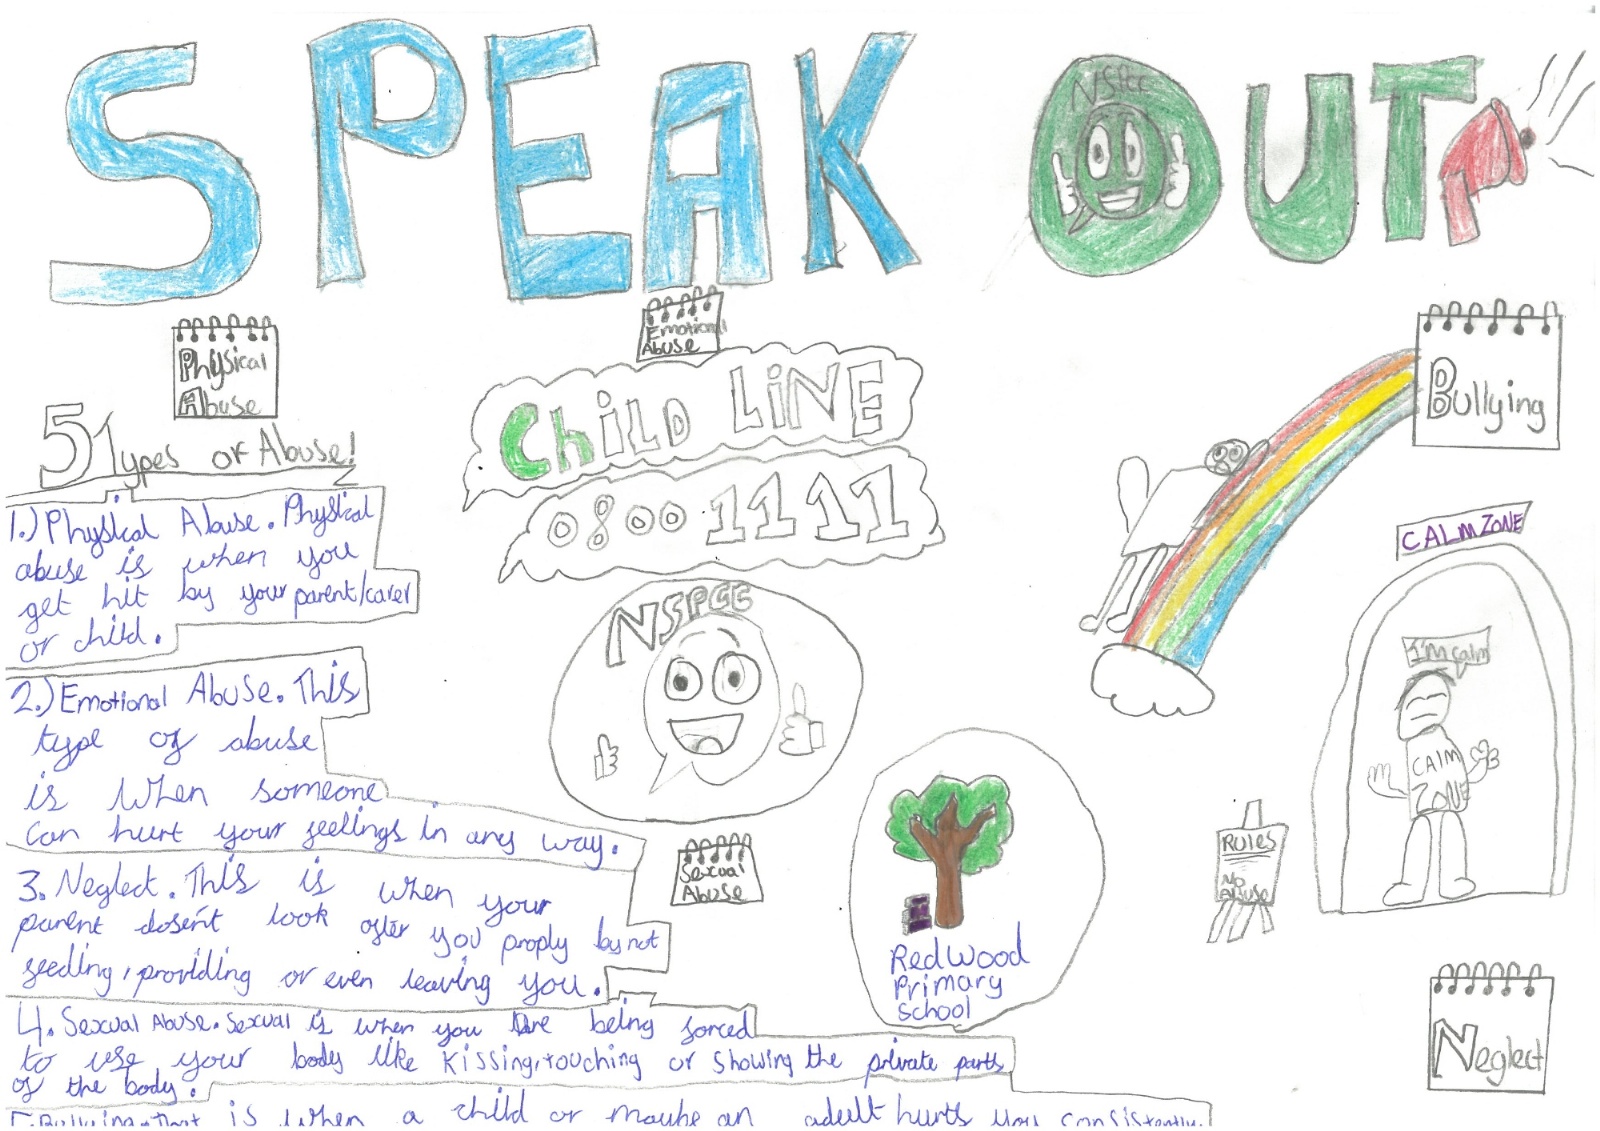 SPEAK OUT
NSPCC
Physical
Abuse
Emotional
Abuse
Bullying
5 Types of Abuse!
Child LiNE
0800 1111
1.) Physical Abuse. Physical
abuse is when you
get hit by your parent/carer
or child.
2.) Emotional Abuse. This
type of abuse
is when someone
can hurt your feelings in any way.
3. Neglect. This is when your
parent dosen't look after you proply by not
feeding, providing or even leaving you.
4. Sexual Abuse. Sexual is when you are being forced
to use your body like kissing, touching or showing the private parts
of the body.
5. Bullying. That is when a child or maybe an adult hurts you consistently.
NSPCC
Sexual
Abuse
RedWood
Primary
School
CALM ZONE
I'M calm
CALM
ZONE
RULES
No
Abuse
Neglect